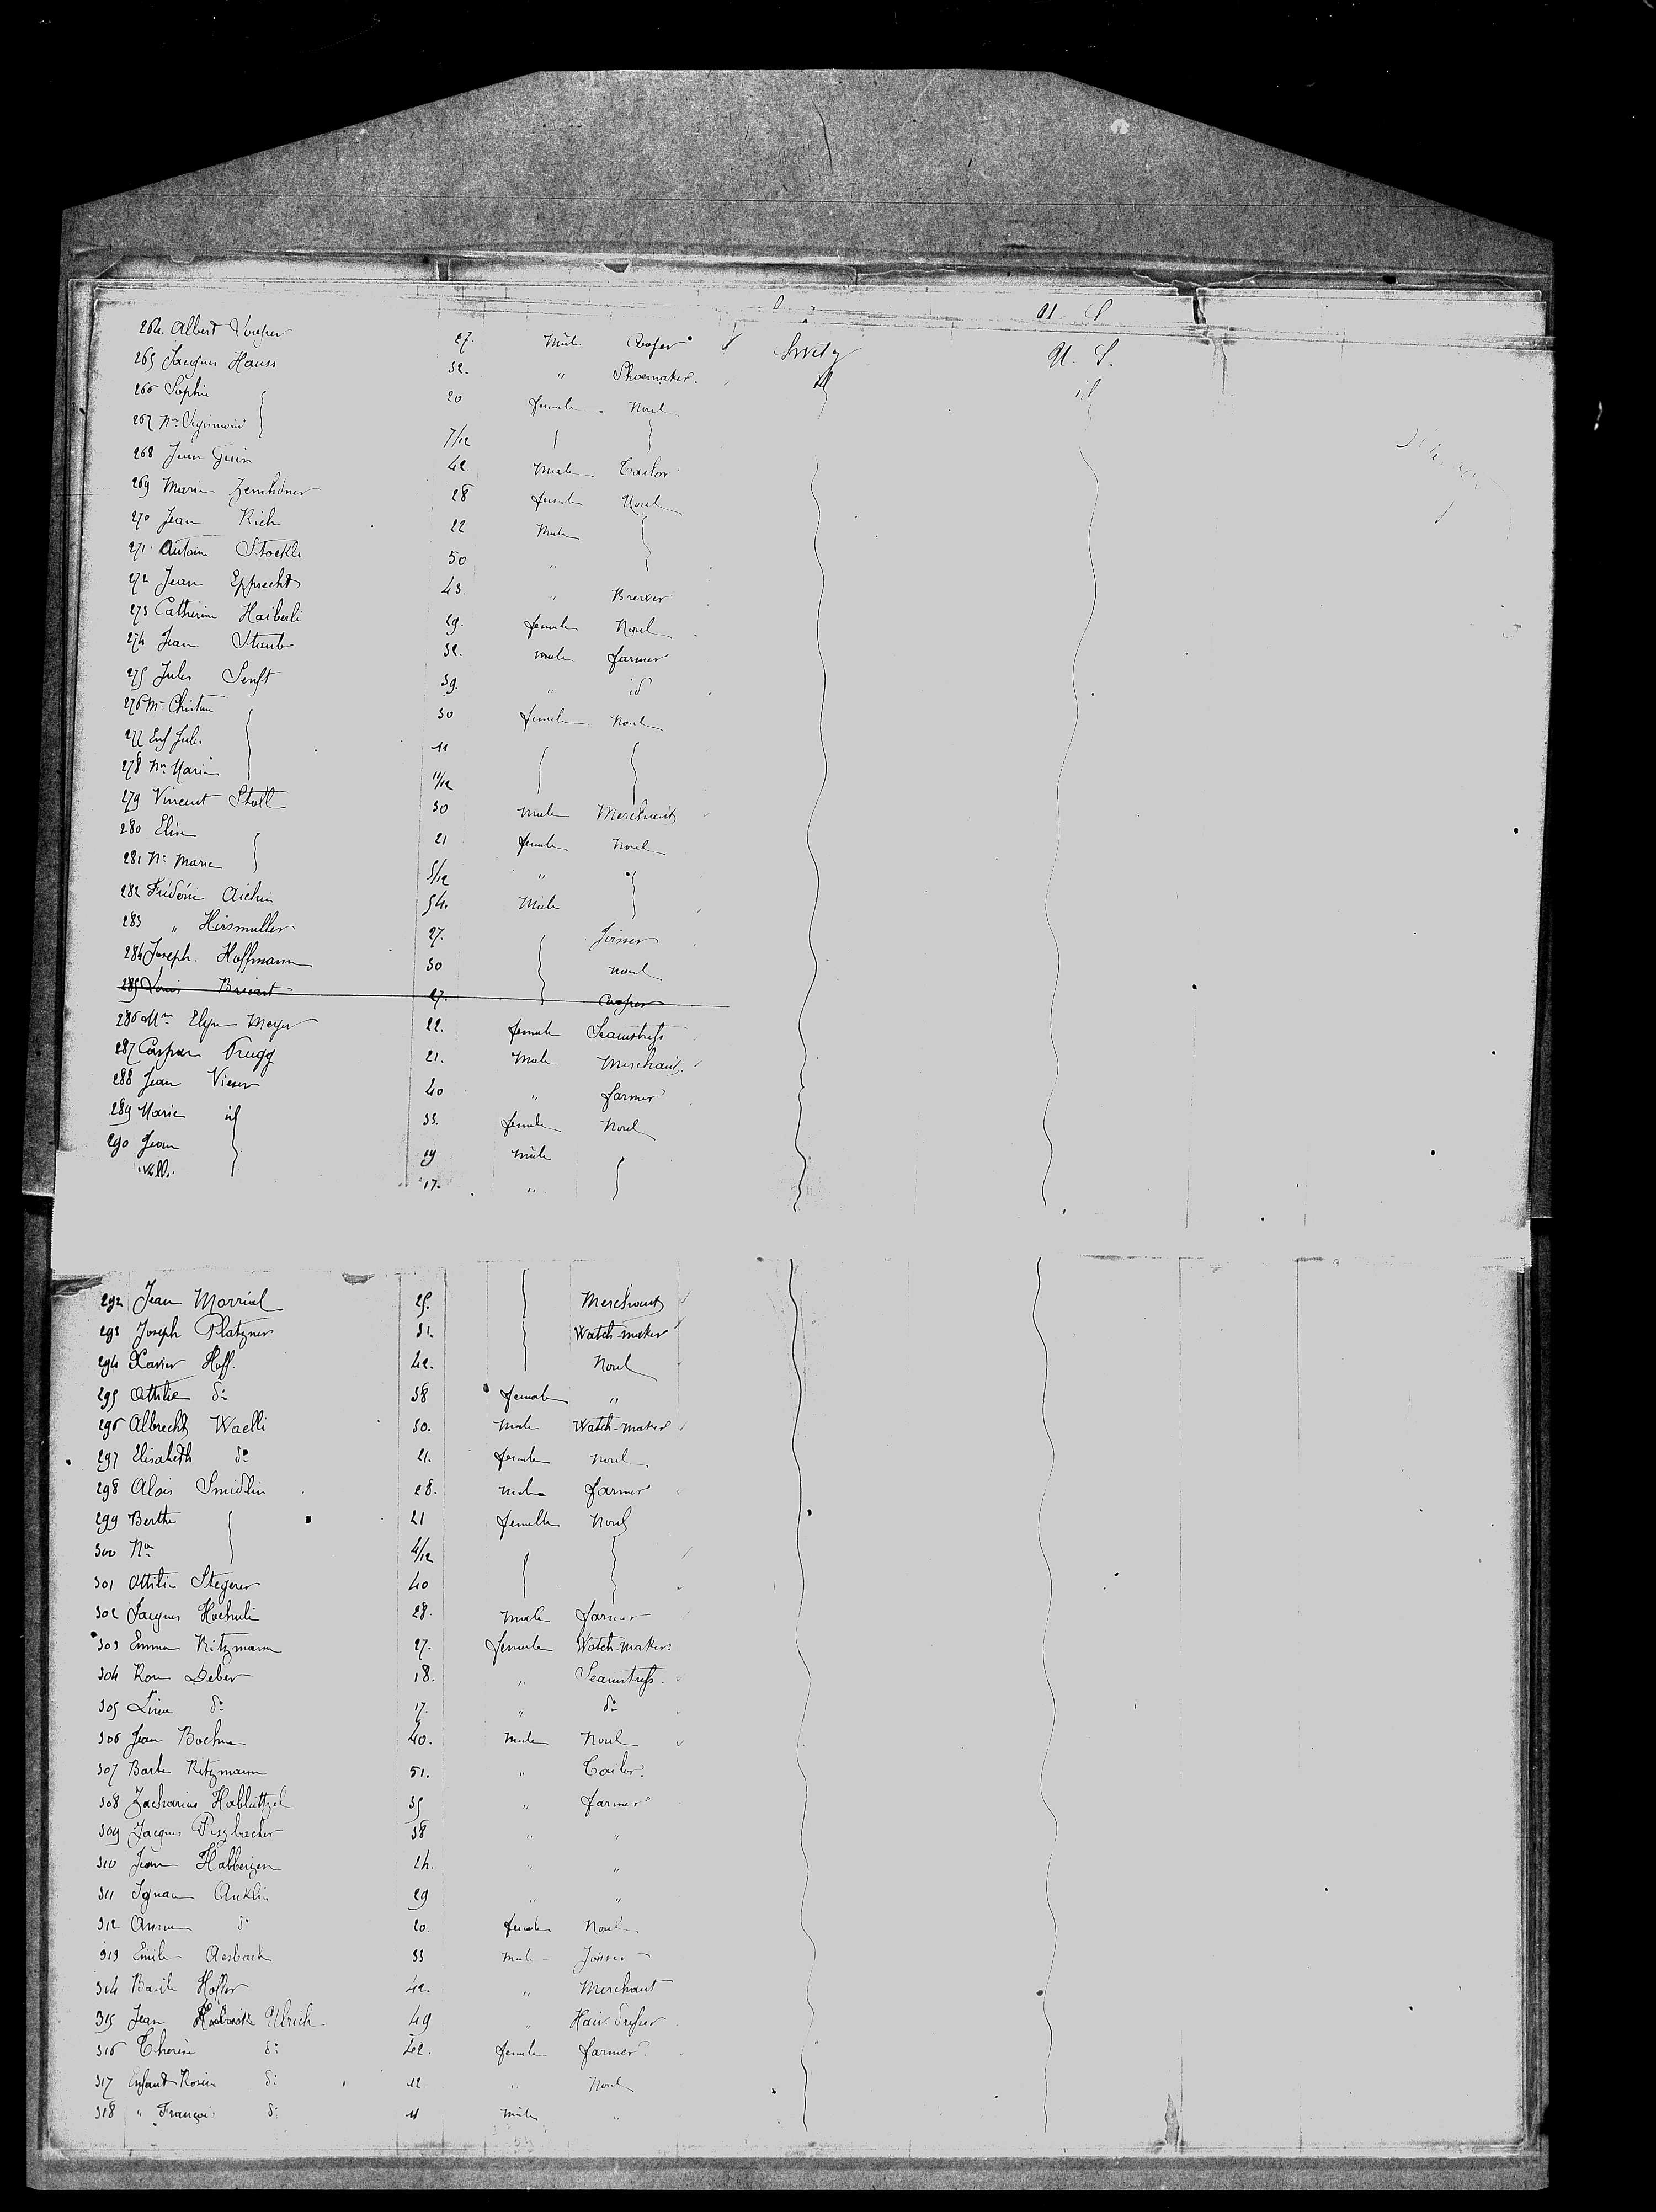 264. Albert 27. Male Cooper Switz U. S.
265 Jacques Hauss 32. " Shoemaker. id id
266 Sophie 20 female None
267 Nn Sigismond 7/12
268 Jean 42. Male Tailor
269 Marie 28 female None
270 Jean Rich 22 Male
271 Antoine Stockli 50 "
272 Jean Epprecht 43. " Brewer
273 Catherine Haiberli 39. female None
274 Jean Staub 32. male farmer
275 Jules Senft 39. " id
276 Christine 30 female None
277 Enf Jules 11
278 Nn Marie 11/12
279 Vincent Stoll 30 Male Merchant
280 Elise 21 female None
281 Nn Marie 5/12 "
282 Frédéric Aichin 54. Male
283 " Hirsmuller 27. Joiner
284 Joseph. Hoffmann 30 None
285 Louis 27. Cooper
286 Mme Elyse Meyer 22. female Seamstress
287 Caspar Trugg 21. Male Merchant.
288 Jean Vieser 40 " farmer
289 Marie id 33. female None
290 Jean 19 Male
17. "
292 Jean Morrial 25. Merchant
293 Joseph Platzner 31. Watch-maker
294 Xavier Hoff. 42. None
295 Attilie do 38 female "
296 Albrecht Waelli 30. Male Watch-maker
297 Elisabeth do 21. female None
298 Alois Smidlin 28. Male farmer
299 Berthe 21 femelle None
300 Nn 4/12
301 Attilie Stegerer 40
302 Jacques Hochuli 28. Male farmer
303 Emma Ritzmann 27. female Watch-maker
304 Rose Deber 18. " Seamstress.
305 Lina do 17. " do
306 Jean 40. Male None
307 Ritzmann 51. " Tailor
308 Zacharias Habluttzel 35 " farmer
309 Jacques 38 " "
310 Jean 24. " "
311 Ignace Anklin 29 " "
312 Anna do 20. female None
313 Emile Aesbach 33 male Joiner
314 Basile Hoffer 42. " Merchant
315 Jean Ulrich 49 " Hair-dresser
316 Therèse do 42. female farmer
317 Enfant Rosine do 12 " None
318 " François do 11 Male "